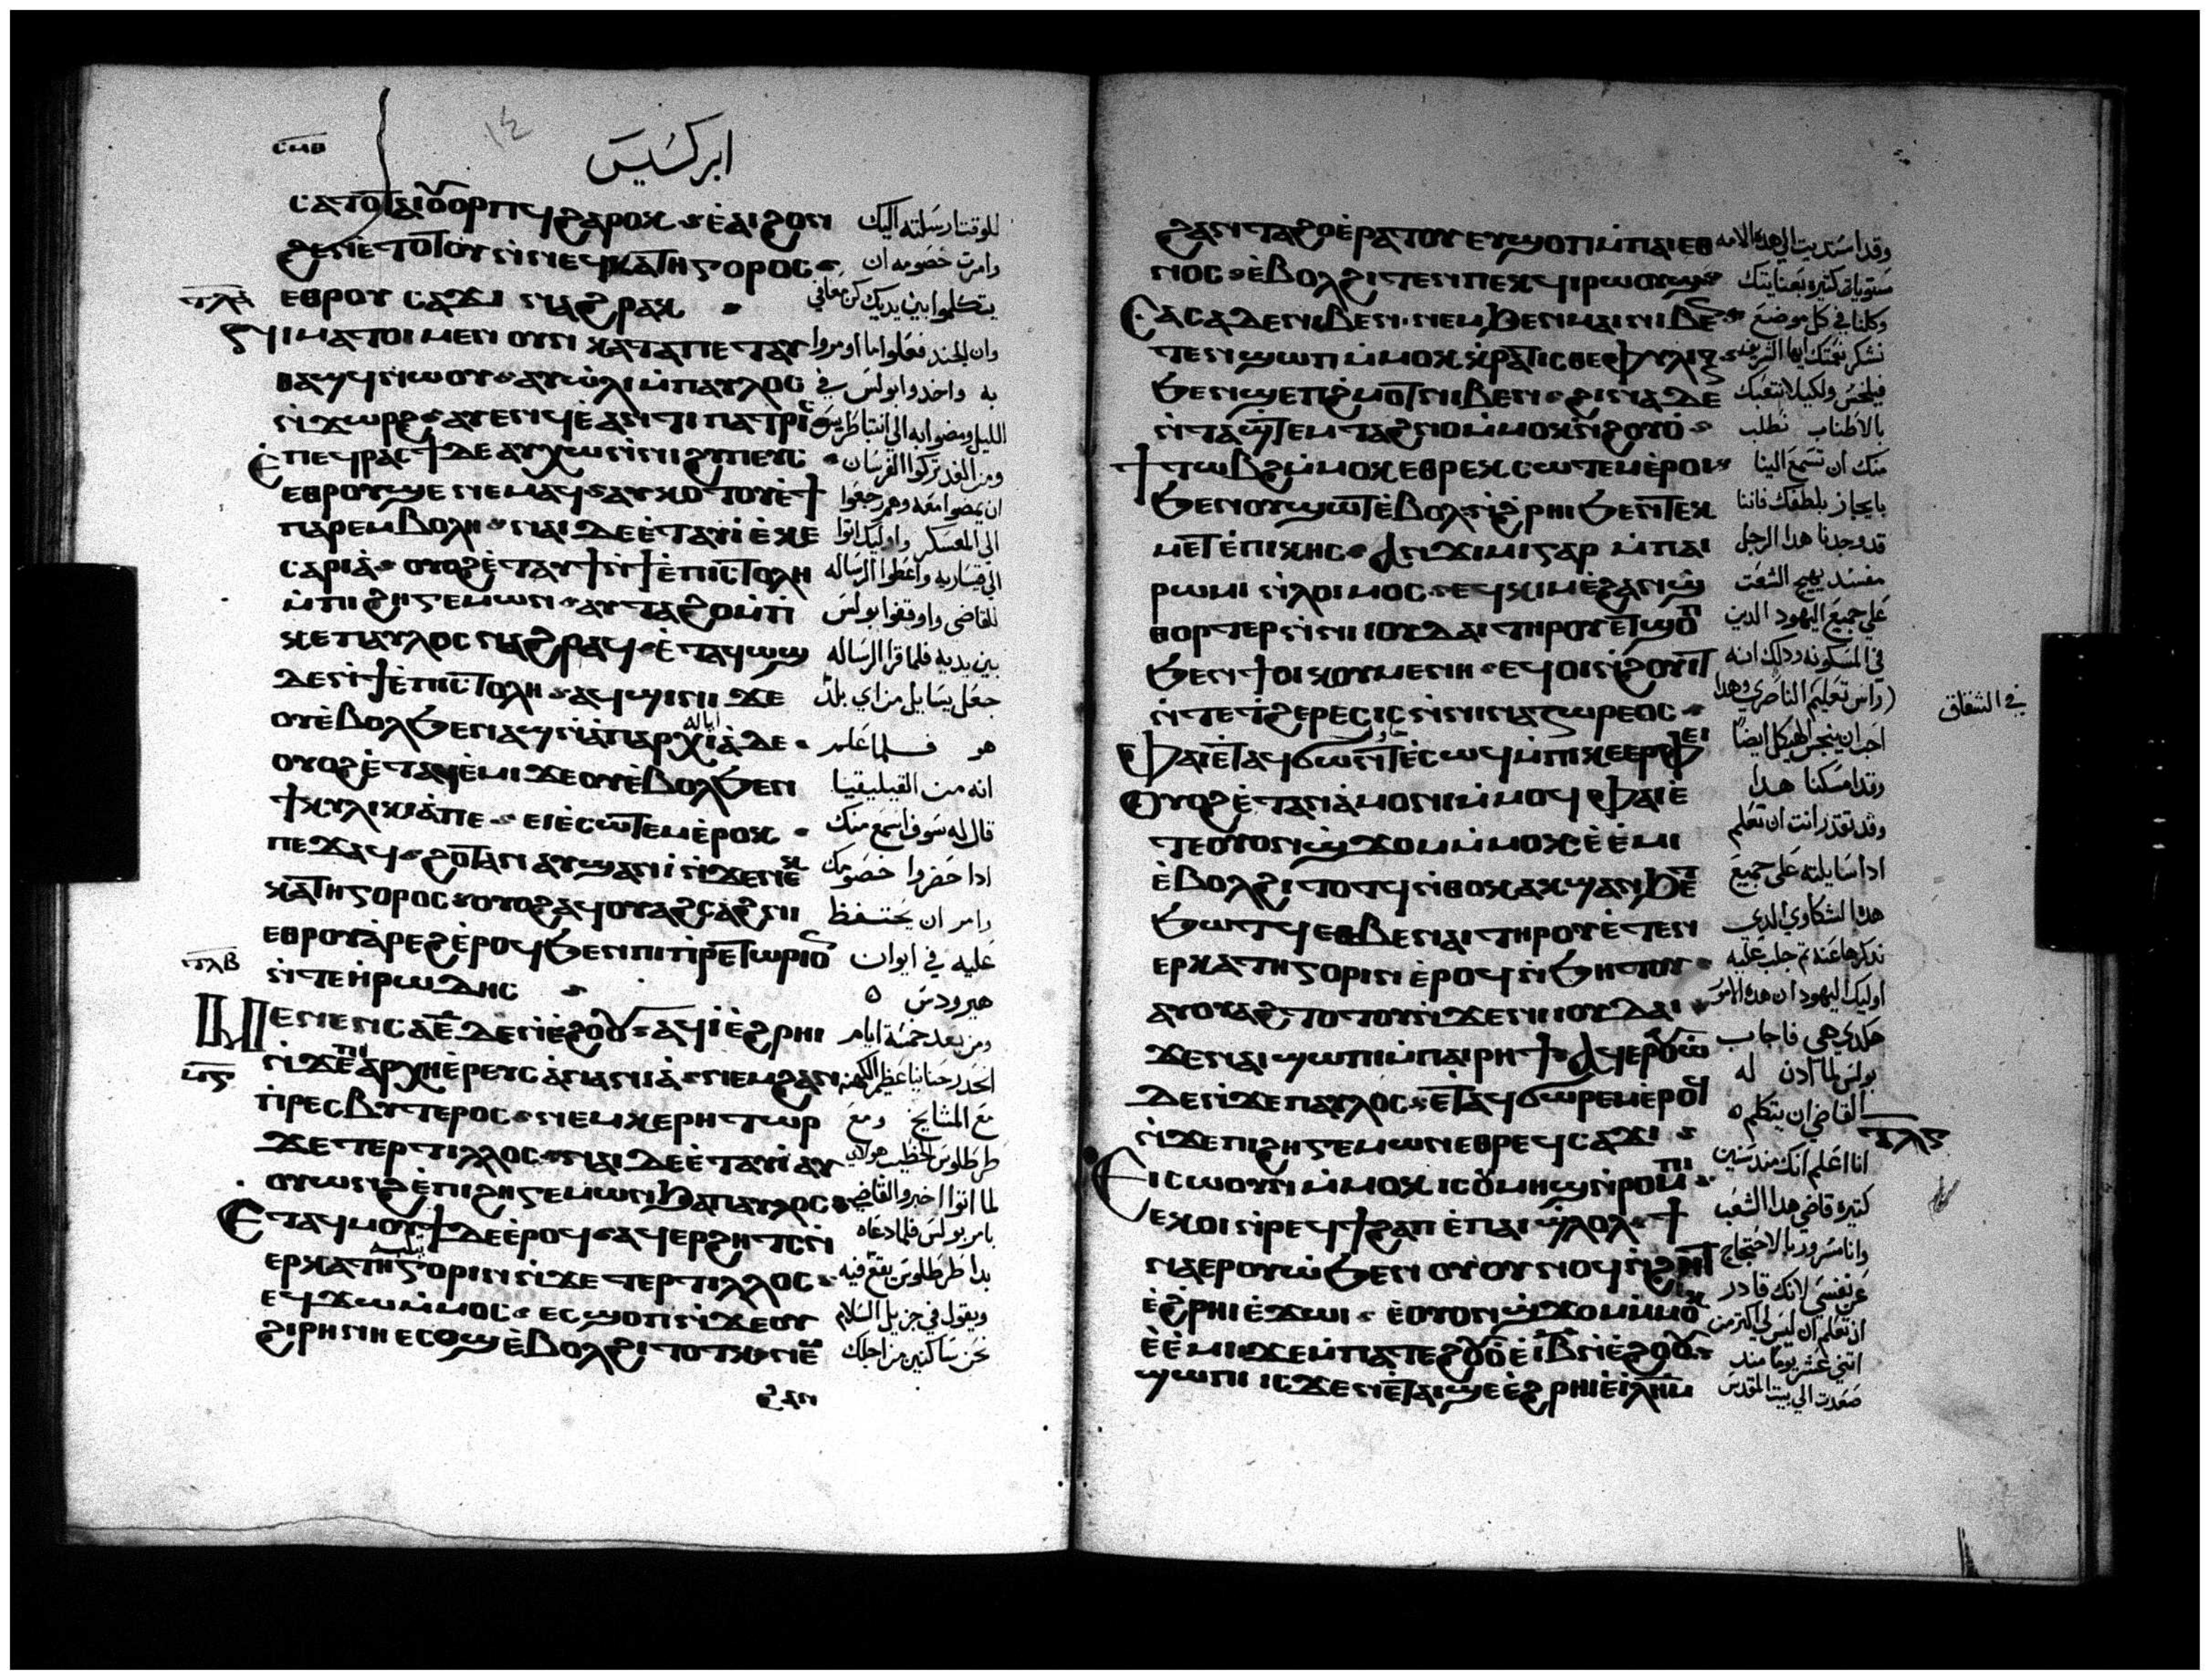 ⲥⲙⲃ
١٤
ابركسيس
ⲥⲁⲧⲟⲧ ⲁⲓⲟⲩⲟⲣⲡϥ ϩⲁⲣⲟⲕ ⲉⲁⲓϩⲟⲛ للوقت ارسلته اليك
ϩⲉⲛ ⲉⲧⲟⲧⲟⲩ ⲛⲛⲉϥⲕⲁⲧⲏⲅⲟⲣⲟⲥ وامرت خصومه ان
ⲧⲗⲁ ⲉⲑⲣⲟⲩ ⲥⲁϫⲓ ⲛⲁϩⲣⲁⲕ يتكلموا بين يديك كن معافي
ⲛⲓⲙⲁⲧⲟⲓ ⲙⲉⲛ ⲟⲩⲛ ⲕⲁⲧⲁ ⲡⲉⲧⲁⲩ وان الجند فعلوا ما اومروا
ⲑⲁϣϥ ⲛⲱⲟⲩ ⲁⲩⲱⲗⲓ ⲙⲡⲁⲩⲗⲟⲥ به واخدوا بولس في
ⲛϫⲱⲣϩ ⲁⲩⲉⲛϥ ⲉⲁⲛⲧⲓⲡⲁⲧⲣⲓⲥ الليل ومضوا به الي انتباطريس
ⲉⲡⲉϥⲣⲁⲥϯ ⲇⲉ ⲁⲩⲭⲱ ⲛⲛⲓϩⲩⲡⲉⲩⲥ ومن الغد تركوا الفرسان
ⲉⲑⲣⲟⲩϣⲉ ⲛⲉⲙⲁϥ ⲁⲩⲕⲟⲧⲟⲩ ⲉϯ ان يمضوا معه وهم رجعوا
ⲡⲁⲣⲉⲙⲃⲟⲗⲏ ⲛⲁⲓ ⲇⲉ ⲉⲧⲁⲩⲓ ⲉⲕⲉ الي المعسكر واوليك اتوا
ⲥⲁⲣⲓⲁ ⲟⲩⲟϩ ⲉⲧⲁⲩϯ ⲛϯⲉⲡⲓⲥⲧⲟⲗⲏ الي قيساريه واعطوا الرساله
ⲙⲡⲓϩⲏⲅⲉⲙⲱⲛ ⲁⲩⲧⲁϩⲟ ⲙⲡⲓ للقاضي واوقفوا بولس
ⲕⲉⲡⲁⲩⲗⲟⲥ ⲛⲁϩⲣⲁϥ ⲉⲧⲁϥⲱϣ بين يديه فلما قرا الرساله
ⲇⲉ ⲛϯⲉⲡⲓⲥⲧⲟⲗⲏ ⲁϥϣⲓⲛⲓ ϫⲉ جعل يسايل من اي بلد
ⲟⲩⲉⲃⲟⲗ ϧⲉⲛ ⲁϣ ⲛⲁⲡⲁⲣⲭⲓⲁ ⲇⲉ هو فلما علم
ⲟⲩⲟϩ ⲉⲧⲁϥⲉⲙⲓ ϫⲉ ⲟⲩⲉⲃⲟⲗ ϧⲉⲛ انه من القيليقيا
ϯⲕⲩⲗⲓⲕⲓⲁ ⲡⲉ ⲉⲓⲉⲥⲱⲧⲉⲙ ⲉⲣⲟⲕ قال له سوف اسمع منك
ⲡⲉϫⲁϥ ϩⲟⲧⲁⲛ ⲁⲩϣⲁⲛⲓ ⲛϫⲉ ⲛⲉⲕ ادا حضروا خصومك
ⲕⲁⲧⲏⲅⲟⲣⲟⲥ ⲟⲩⲟϩ ⲁϥⲟⲩⲁϩⲥⲁϩⲛⲓ وامر ان يحتفظ
ⲉⲑⲣⲟⲩⲁⲣⲉϩ ⲉⲣⲟϥ ϧⲉⲛ ⲡⲓⲡⲣⲉⲧⲱⲣⲓⲟⲛ عليه في ايوان
ⲧⲗⲃ ⲛⲧⲉ ⲏⲣⲱⲇⲏⲥ هيرودس
ⲙⲉⲛⲉⲛⲥⲁ ⲉ ⲇⲉ ⲛⲉϩⲟⲟⲩ ⲁϥⲓ ⲉϩⲣⲏⲓ ومن بعد خمسة ايام
ⲛϫⲉ ⲡⲓⲁⲣⲭⲏⲉⲣⲉⲩⲥ ⲁⲛⲁⲛⲓⲁ ⲛⲉⲙ ϩⲁⲛ انحدر حنانيا عظيم الكهنه
ⲡⲣⲉⲥⲃⲩⲧⲉⲣⲟⲥ ⲛⲉⲙ ⲕⲉⲣⲏⲧⲱⲣ مع المشايخ ومع
ϫⲉ ⲧⲉⲣⲧⲓⲗⲗⲟⲥ ⲛⲁⲓ ⲇⲉ ⲉⲧⲁⲩⲓ ⲁⲩ طرطلوس الخطيب هولاي
ⲟⲩⲱⲛϩ ⲉⲡⲓϩⲏⲅⲉⲙⲱⲛ ϧⲁ ⲡⲁⲩⲗⲟⲥ لما اتوا اخبروا القاضي
ⲉⲧⲁϥⲙⲟⲩϯ ⲇⲉ ⲉⲣⲟϥ ⲁϥⲉⲣϩⲏⲧⲥ ⲛ بامر بولس فلما دعاه
ⲉⲣⲕⲁⲧⲏⲅⲟⲣⲓⲛ ⲛϫⲉ ⲧⲉⲣⲧⲓⲗⲗⲟⲥ بدا طرطلوس يقع فيه
ⲉϥϫⲱ ⲙⲙⲟⲥ ⲉⲥϣⲟⲡ ⲛϫⲉ ⲟⲩ ويقول في جزيل السلام
ϩⲓⲣⲏⲛⲏ ⲉⲥⲟϣ ⲉⲃⲟⲗ ϩⲓⲧⲟⲧⲕ نحن ساكنين من اجلك
ϩⲁⲛ
ϩⲁⲛⲧⲁϩⲟ ⲉⲣⲁⲧⲟⲩ ⲉⲩϣⲟⲡ ⲙⲡⲁⲓⲉⲑ وقد اسنديت الي هده الامه
ⲛⲟⲥ ⲉⲃⲟⲗ ϩⲓⲧⲉⲛ ⲡⲉⲕϥⲓⲣⲱⲟⲩϣ مستويات كتيره بعنايتك
ⲥⲁⲥⲁ ⲇⲉ ⲛⲓⲃⲉⲛ ⲛⲉⲙ ϧⲉⲛ ⲙⲁⲓ ⲛⲓⲃⲉⲛ وكلنا في كل موضع
ⲧⲉⲛϣⲱⲡ ⲙⲙⲟⲕ ⲕⲣⲁⲧⲓⲥⲑⲉ ⲫⲩⲗⲓⲝ نشكر نعمتك ايها الشريف
ϧⲉⲛ ϣⲉⲡϩⲙⲟⲧ ⲛⲓⲃⲉⲛ ϩⲓⲛⲁ ⲇⲉ فيلخس ولكيلا نتعبك
ⲛⲧⲁϣⲧⲉⲙⲧⲁϩⲛⲟ ⲙⲙⲟⲕ ⲛϩⲟⲩⲟ بالاطناب نطلب
ϯⲧⲱⲃϩ ⲙⲙⲟⲕ ⲉⲑⲣⲉⲕⲥⲱⲧⲉⲙ ⲉⲣⲟⲛ منك ان تسمع الينا
ϧⲉⲛ ⲟⲩϣⲱⲧ ⲉⲃⲟⲗ ⲛϩⲣⲏⲓ ϧⲉⲛ ⲧⲉⲕ بايجاز بلطفك فاننا
ⲙⲉⲧⲉⲡⲓⲕⲏⲥ ⲁⲛϫⲓⲙⲓ ⲅⲁⲣ ⲙⲡⲁⲓ قد وجدنا هدا الرجل
ⲣⲱⲙⲓ ⲛⲗⲟⲓⲙⲟⲥ ⲉϥⲕⲓⲙ ⲉϩⲁⲛϣ مفسد يهيج الشعب
ⲑⲟⲣⲧⲉⲣ ⲛⲛⲓⲓⲟⲩⲇⲁⲓ ⲧⲏⲣⲟⲩ ⲉⲧϣⲟⲡ علي جميع اليهود الدين
ϧⲉⲛ ϯⲟⲓⲕⲟⲩⲙⲉⲛⲏ ⲉϥⲟⲓ ⲛϩⲟⲩⲓⲧ في المسكونه ودلك انه
ⲛⲧⲉ ⲧϩⲉⲣⲉⲥⲓⲥ ⲛⲛⲓⲛⲁⲍⲱⲣⲉⲟⲥ راس تعليم الناصري وهدا
في الشقاق
ⲫⲁⲓ ⲉⲧⲁϥϭⲱⲛⲧ ⲉⲥⲱϥ ⲙⲡⲓⲕⲉⲉⲣⲫⲉⲓ احب ان ينجس الهيكل ايضا
ⲟⲩⲟϩ ⲉⲧⲁⲛⲁⲙⲟⲛⲓ ⲙⲙⲟϥ ⲫⲁⲓ ⲉ وقد امسكنا هدا
ⲧⲉ ⲟⲩⲟⲛ ϣϫⲟⲙ ⲙⲙⲟⲕ ⲉⲉⲙⲓ وقد تقدر انت ان تعلم
ⲉⲃⲟⲗ ϩⲓⲧⲟⲧϥ ⲛⲑⲟⲕ ⲁⲕϣⲁⲛϧⲉⲧ ادا سايلته علي جميع
ϧⲱⲧϥ ⲉⲑⲃⲉ ⲛⲁⲓ ⲧⲏⲣⲟⲩ ⲉⲧⲉⲛ هده الشكاوي الدي
ⲉⲣⲕⲁⲧⲏⲅⲟⲣⲓⲛ ⲉⲣⲟϥ ⲛϧⲏⲧⲟⲩ ندكرها عنه تم جلب عليه
ⲁⲩⲟⲩⲁϩⲧⲟⲧⲟⲩ ⲛϫⲉ ⲛⲓⲓⲟⲩⲇⲁⲓ اوليك اليهود ان هده الامور
ϫⲉ ⲛⲁⲓ ϣⲱⲡⲓ ⲙⲡⲁⲓⲣⲏϯ ⲁϥⲉⲣⲟⲩⲱ هكدي هي فاجاب
ⲇⲉ ⲛϫⲉ ⲡⲁⲩⲗⲟⲥ ⲉⲧⲁϥϭⲱⲣⲉⲙ ⲉⲣⲟϥ بولس لما ادن له
ⲛϫⲉ ⲡⲓϩⲏⲅⲉⲙⲱⲛ ⲉⲑⲣⲉϥⲥⲁϫⲓ القاضي ان يتكلم
ⲧⲗⲅ
ⲉⲓⲥⲱⲟⲩⲛ ⲙⲙⲟⲕ ⲓⲥ ⲟⲩⲙⲏϣ ⲛⲣⲟⲙⲡⲓ انا اعلم انك مند سنين
ⲉⲕⲟⲓ ⲛⲣⲉϥϯϩⲁⲡ ⲉⲡⲁⲓϣⲗⲟⲗ ϯ كتيره قاضي هدا الشعب
ⲛⲁⲉⲣⲟⲩⲱ ϧⲉⲛ ⲟⲩⲟⲩⲛⲟϥ ⲛϩⲏⲧ وانا مسرور بالاحتجاج
ⲉϩⲣⲏⲓ ⲉϫⲱⲓ ⲉⲟⲩⲟⲛ ϣϫⲟⲙ ⲙⲙⲟⲕ عن نفسي لانك قادر
ⲉⲉⲙⲓ ϫⲉ ⲙⲡⲁⲧⲉ ϩⲟⲩⲟ ⲉⲓⲃ ⲛⲉϩⲟⲟⲩ ان تعلم ان ليس لي اكتر من
ϣⲱⲡⲓ ⲓⲥϫⲉⲛ ⲉⲧⲁⲓϣⲉ ⲉϩⲣⲏⲓ ⲉⲓⲗⲏⲙ اتني عشر يوما مند
صعدت الي بيت المقدس